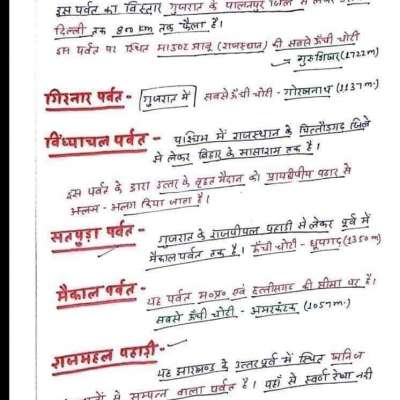 इस पर्वत का विस्तार गुजरात के पालनपुर जिले से लेकर
दिल्ली तक 800 km तक फैला है।
इस पर्वत पर स्थित माउण्ट आबू (राजस्थान) की सबसे ऊँची चोटी
→ गुरुशिखर (1722 m)
गिरनार पर्वत - गुजरात में सबसे ऊँची चोटी - गोरखनाथ (1137 m.)
विंध्याचल पर्वत - पश्चिम में राजस्थान के चित्तौड़गढ़ जिले
से लेकर बिहार के सासाराम तक है।
इस पर्वत के द्वारा उत्तर के वृहत मैदान को प्रायद्वीपीय पठार से
अलग - अलग किया जाता है।
सतपुड़ा पर्वत - गुजरात के राजपीपल पहाड़ी से लेकर पूर्व में
मैकाल पर्वत तक है। ऊँची चोटी - धूपगढ़ (1350 m)
मैकाल पर्वत - यह पर्वत म०प्र० एवं छत्तीसगढ़ की सीमा पर है।
सबसे ऊँची चोटी - अमरकंटक (1057 m.)
राजमहल पहाड़ी - यह झारखण्ड के उत्तर पूर्व में स्थित खनिज
में सम्पन्न वाला पर्वत है। यहाँ से स्वर्ण रेखा नदी